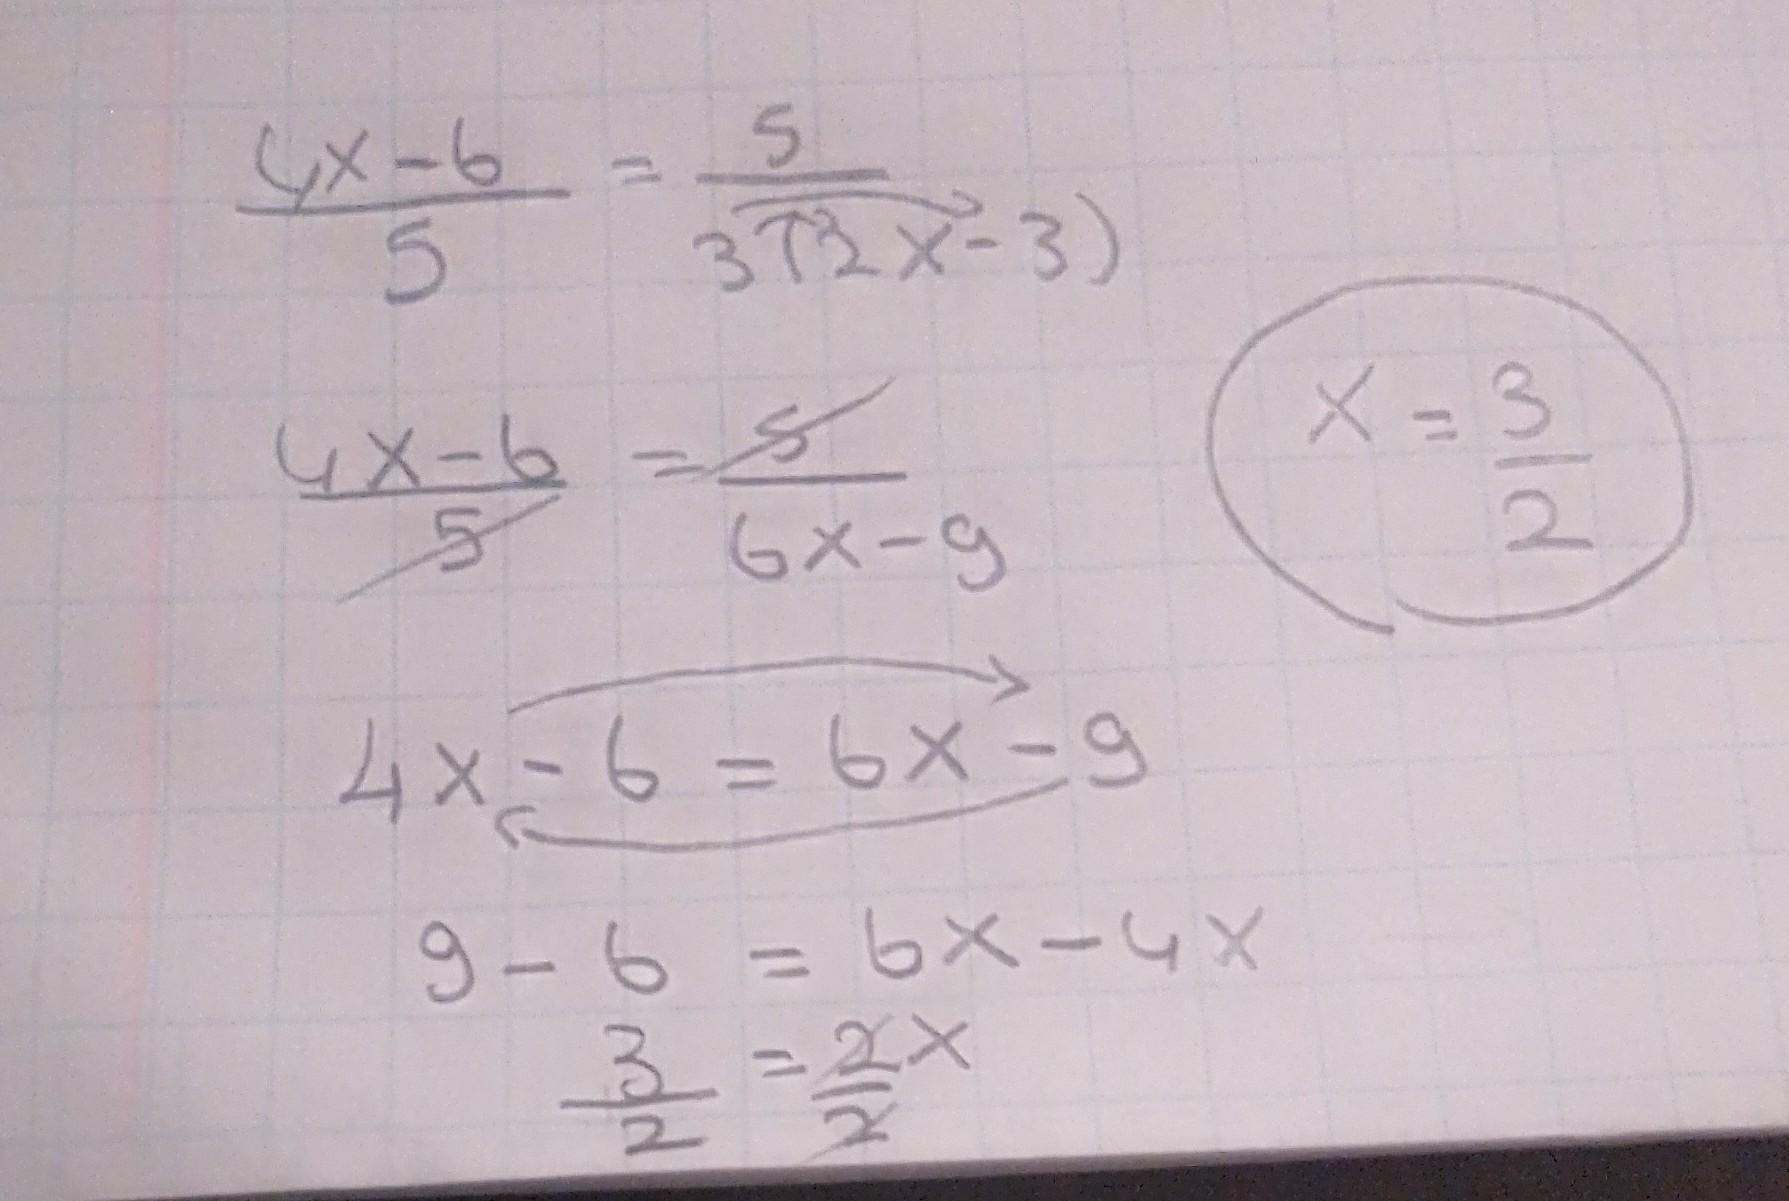 4x-6/5 = 5/3(2x-3)
4x-6/5 = 5/6x-9
x = 3/2
4x - 6 = 6x - 9
9 - 6 = 6x - 4x
3/2 = 2x/2